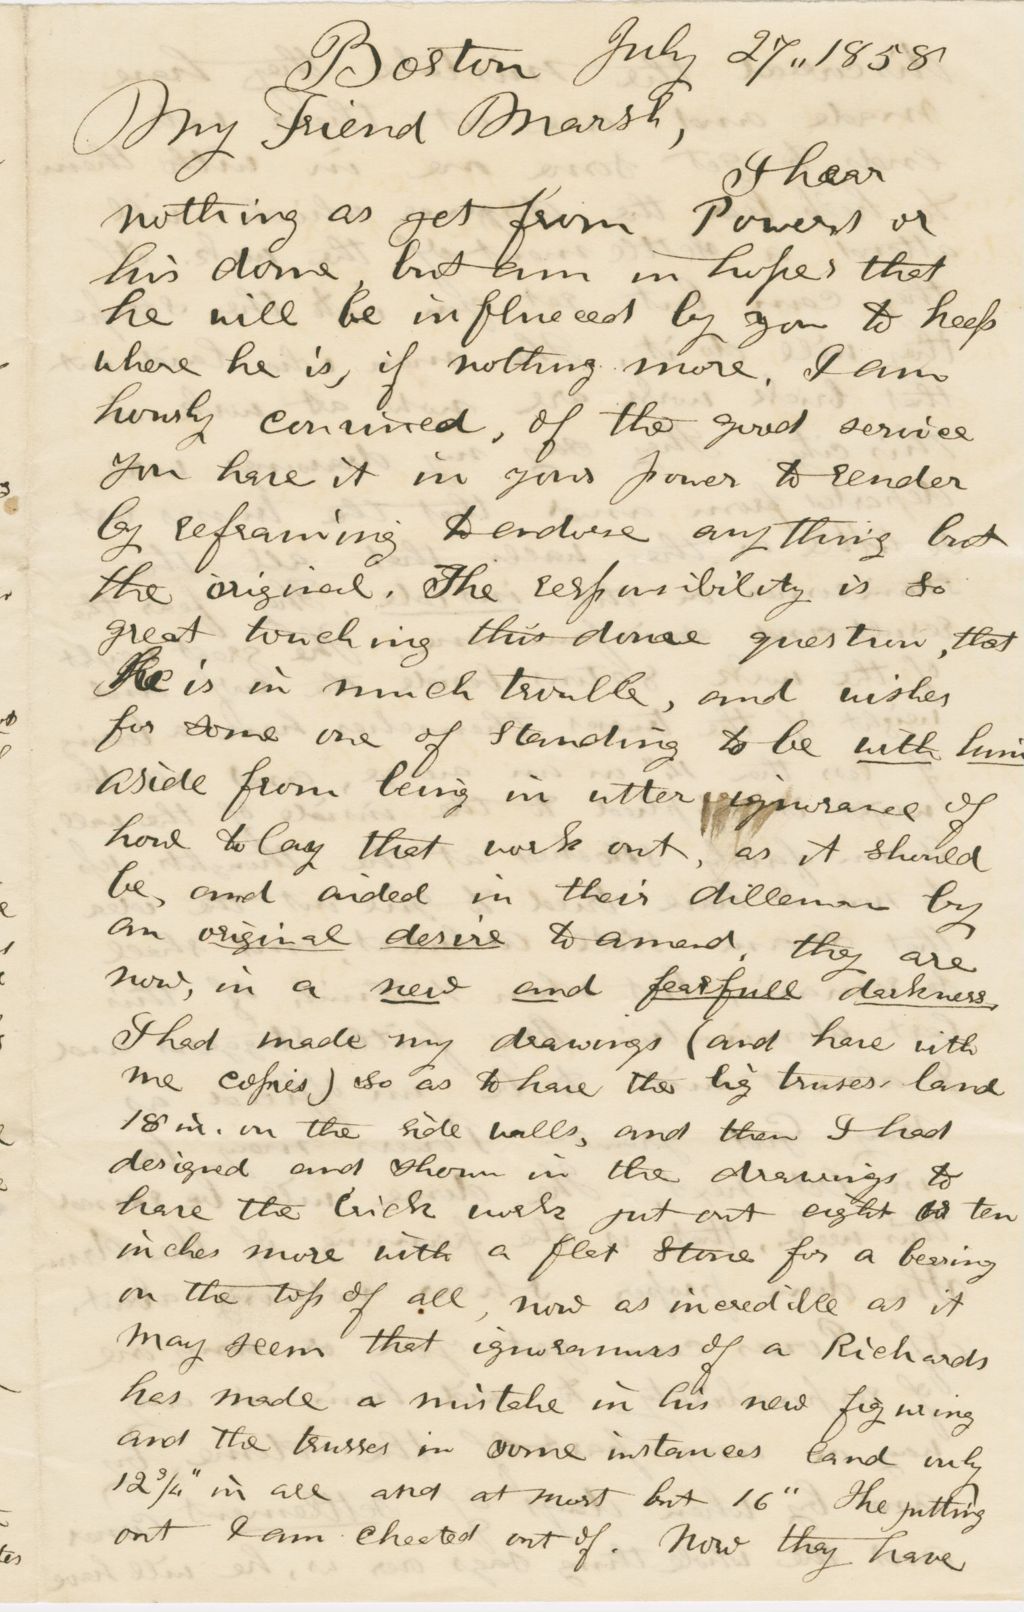 Boston July 27,, 1858
My Friend Marsh,
I hear
nothing as yet from Powers or
his dome, but am in hopes that
he will be influeced by you to keep
where he is, if nothing more. I am
hourly convined, of the good service
you have it in your power to render
by refraining to endorse anything but
the original. The responsibility is so
great touching this dome question, that
He is in much trouble, and wishes
for some one of standing to be with him
aside from being in utter ignorance of
how to lay that work out, as it should
be, and aided in their dillemma by
an original desire to amend, they are
now, in a new and fearfull darkness,
I had made my drawings (and have with
me copies) so as to have the big trusses land
18 in. on the side walls, and then I had
designed and shown in the drawings to
have the brick work jut out eight or ten
inches more with a flat stone for a bearing
on the top of all, now as incredible as it
may seem that ignoramus of a Richards
has made a mistake in his new figuring
and the trusses in some instances land only
12 3/4" in all and at most but 16" The jutting
out I am cheated out of. Now they have